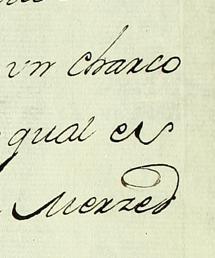 vn charco
qual es
Merzed